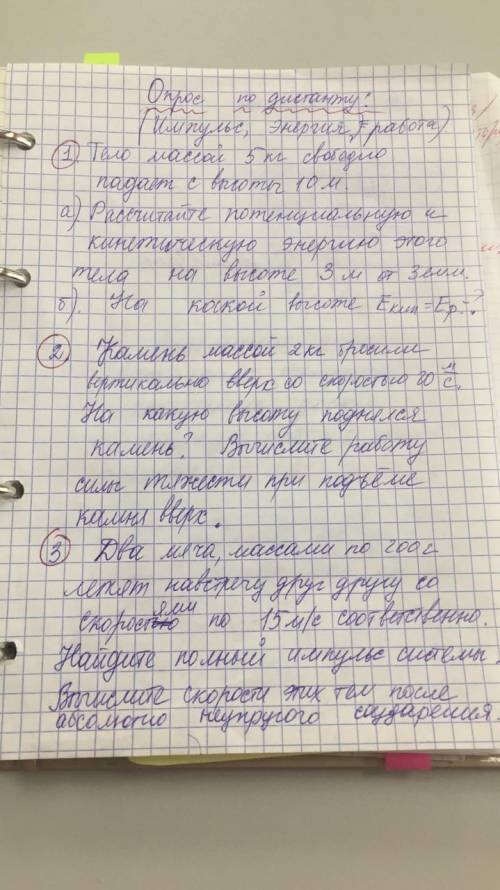 Опрос по дистанту:
(Импульс, энергия, работа)
1 Тело массой 5 кг свободно
падает с высоты 10 м.
а) Рассчитайте потенциальную и
кинетическую энергию этого
тела на высоте 3 м от Земли.
б). На какой высоте Екин = Ер-?
2 Камень массой 2 кг бросили
вертикально вверх со скоростью 20 м/с.
На какую высоту поднялся
камень? Вычислите работу
силы тяжести при подъёме
камня вверх.
3 Два мяча, массами по 200 г
летят навстречу друг другу со
скоростями по 15 м/с соответственно.
Найдите полный импульс системы.
Вычислите скорости этих тел после
абсолютно неупругого соударения.